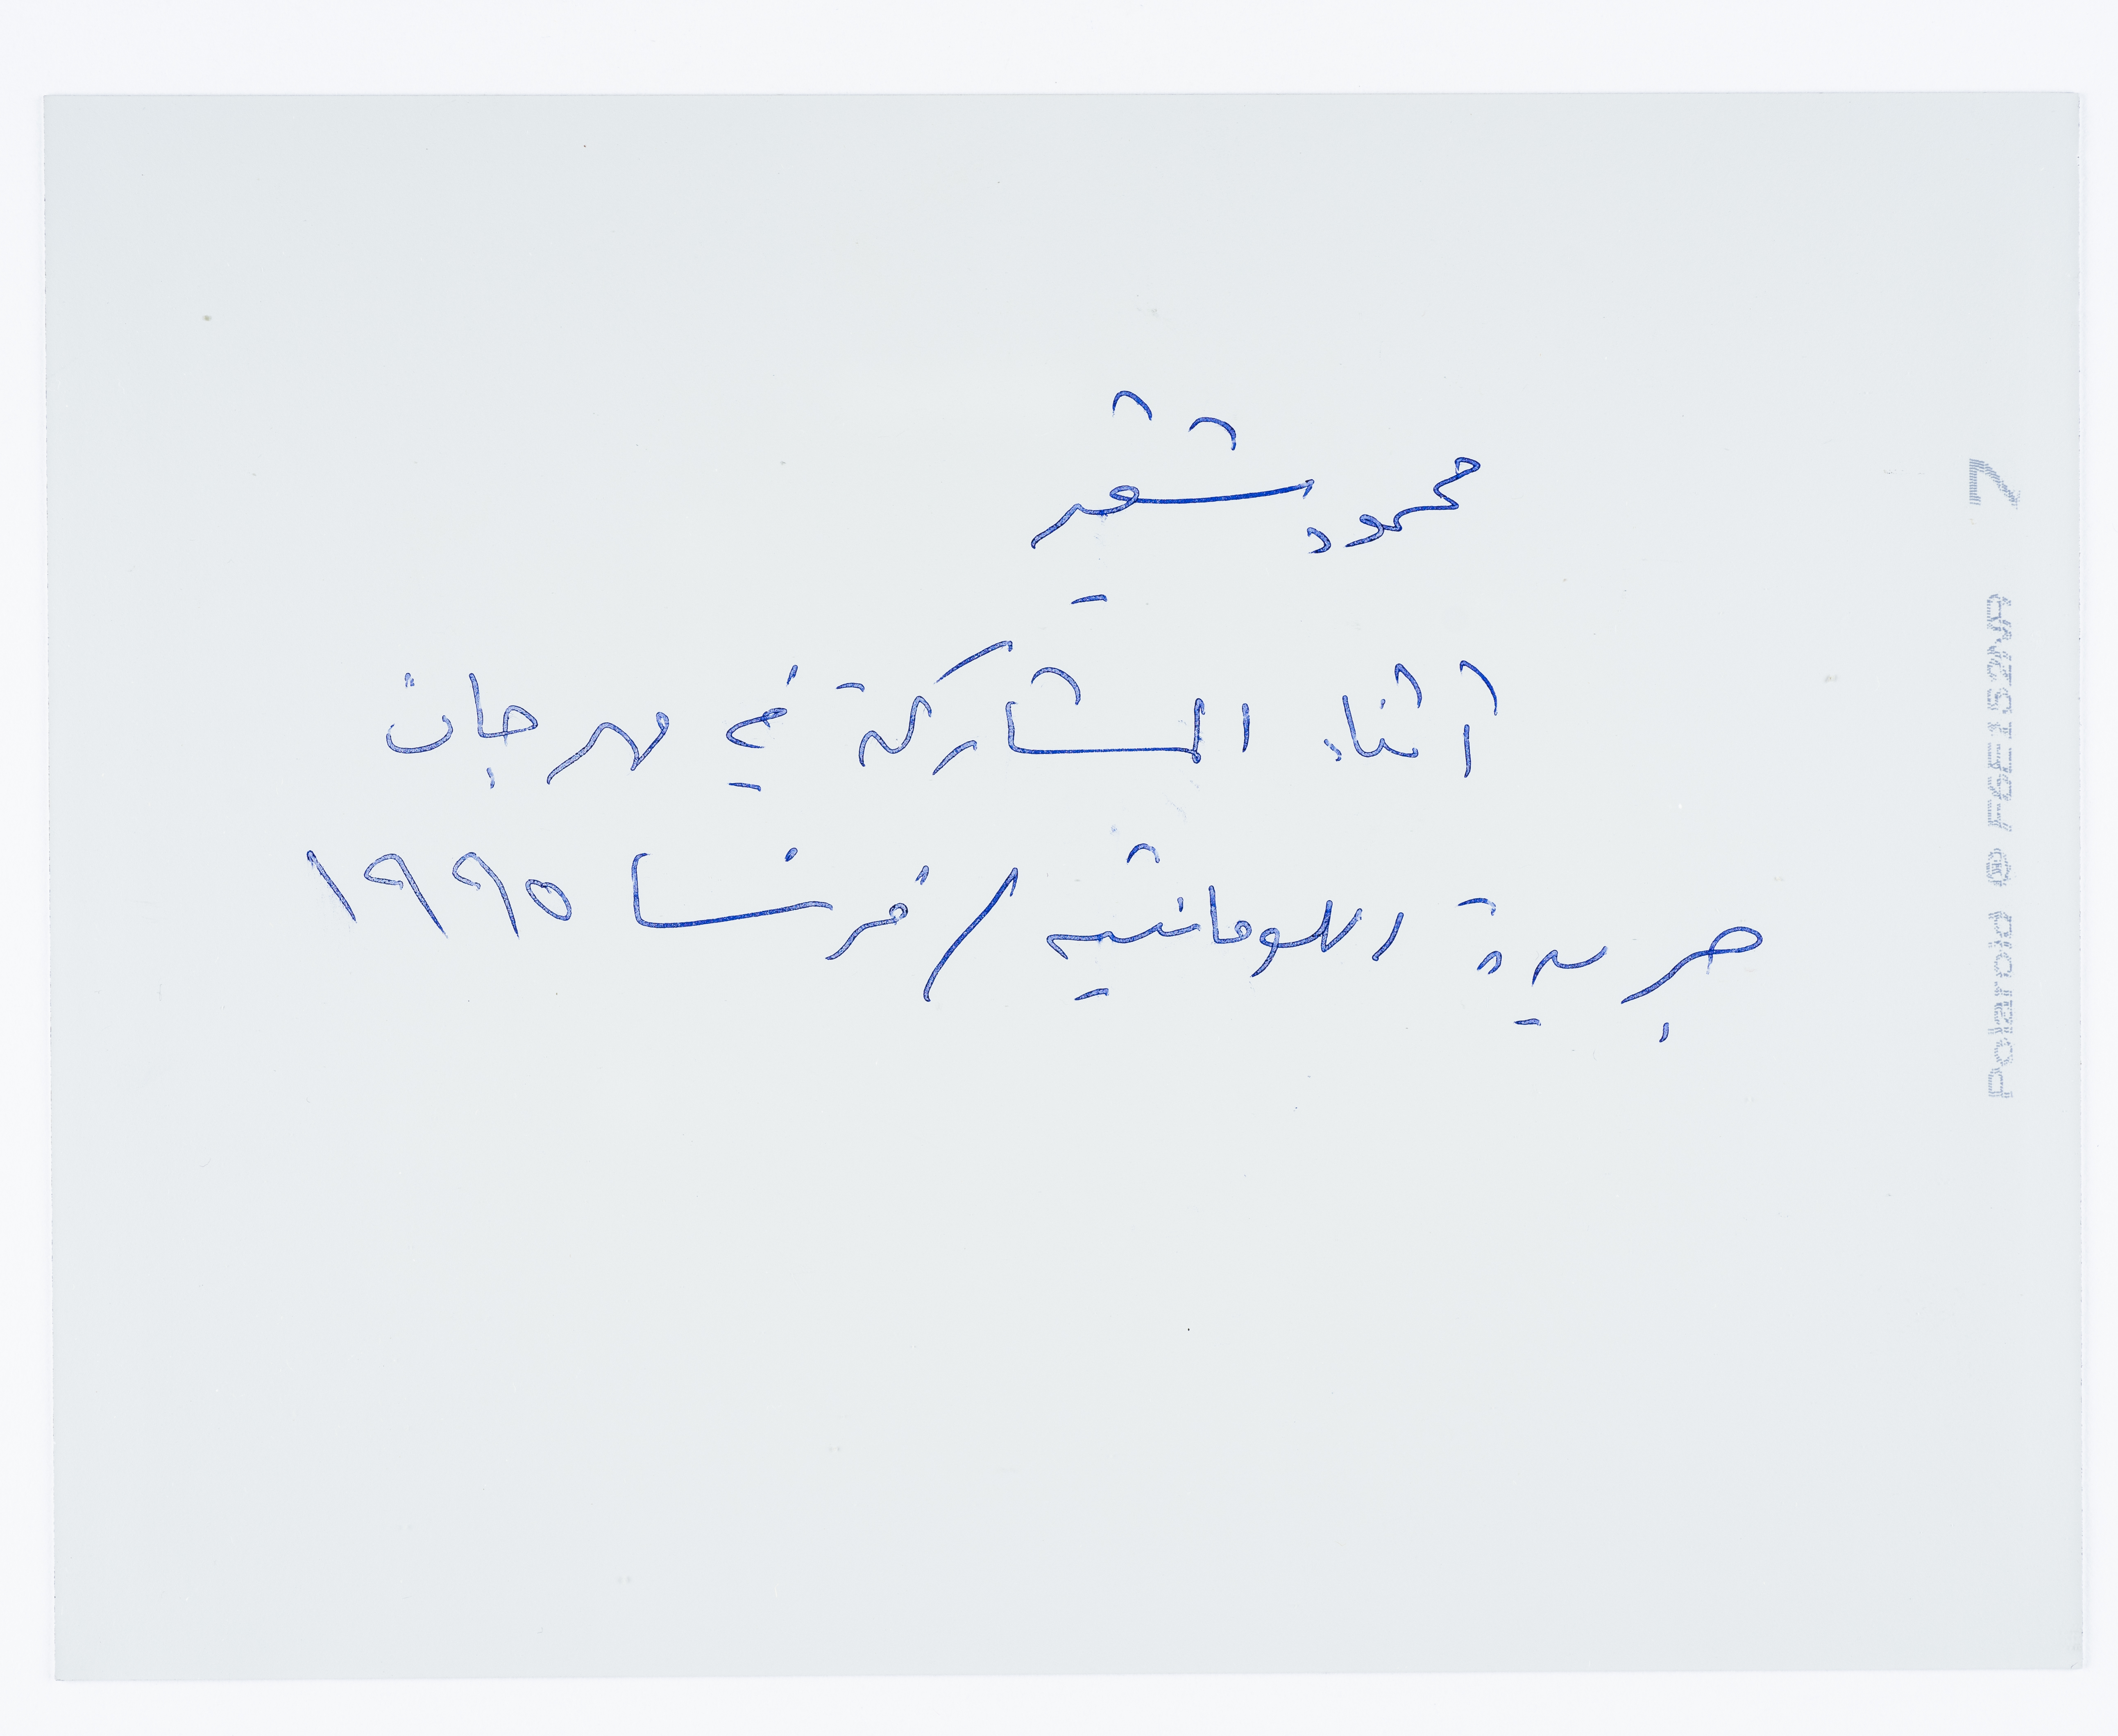 محمود شقير
أثناء المشاركة في مهرجان
جريدة اللومانتيه / فرنسا ١٩٩٥
Polaroid
7